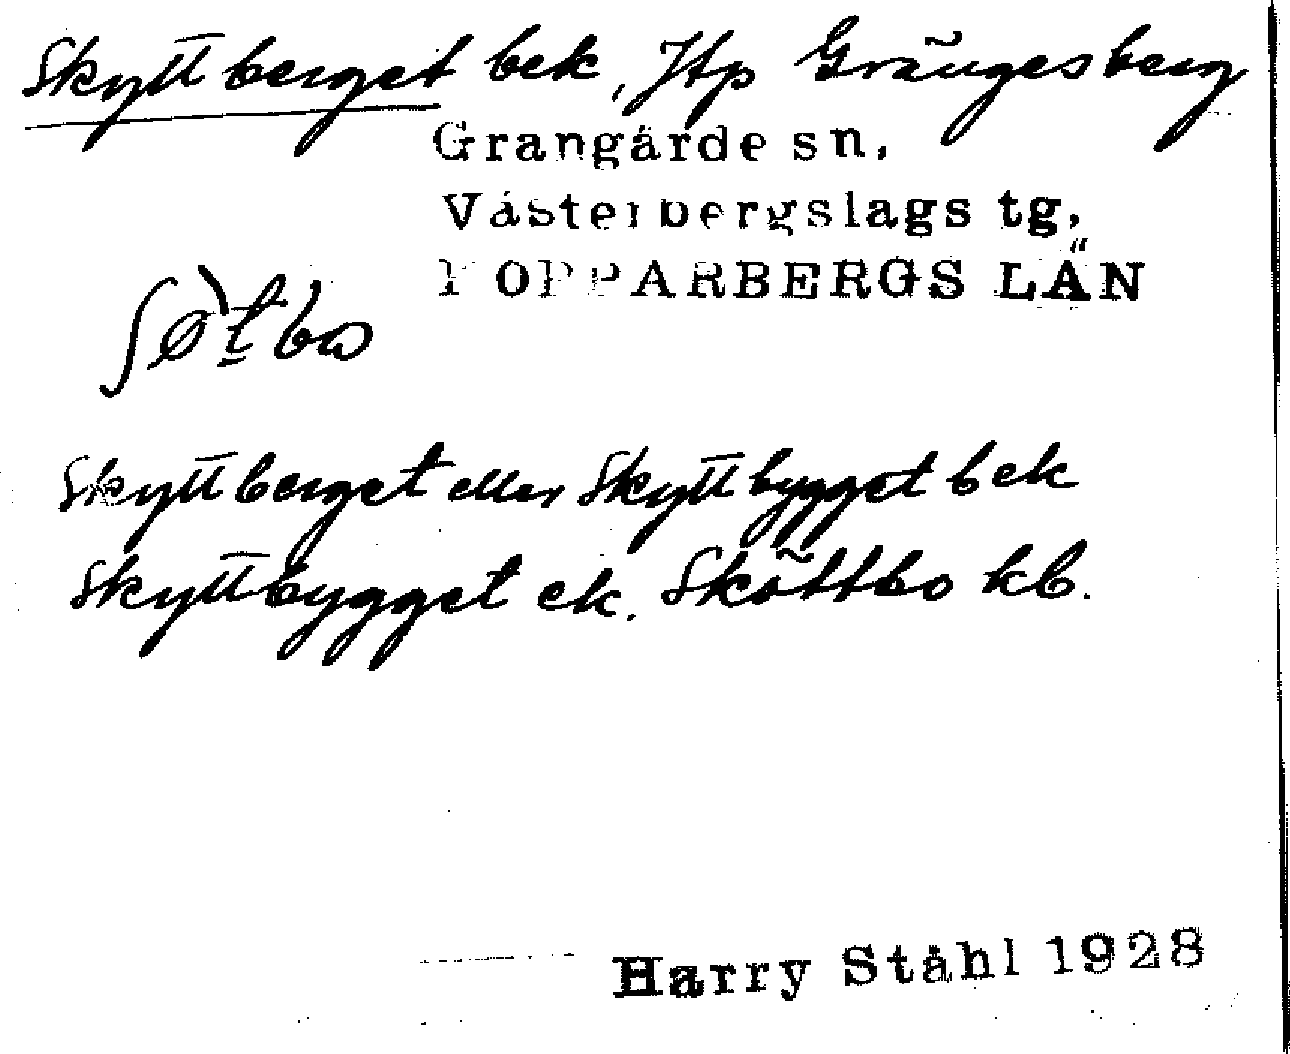 Skyttberget bek, Hp Grängesberg
Grangärde sn.
Västerbergslags tg,
KOPPARBERGS LÄN
ʃø̀t̲bo
Skyttberget eller Skyttbygget bek
Skyttbygget ek. Sköttbo kb.
Harry Ståhl 1928